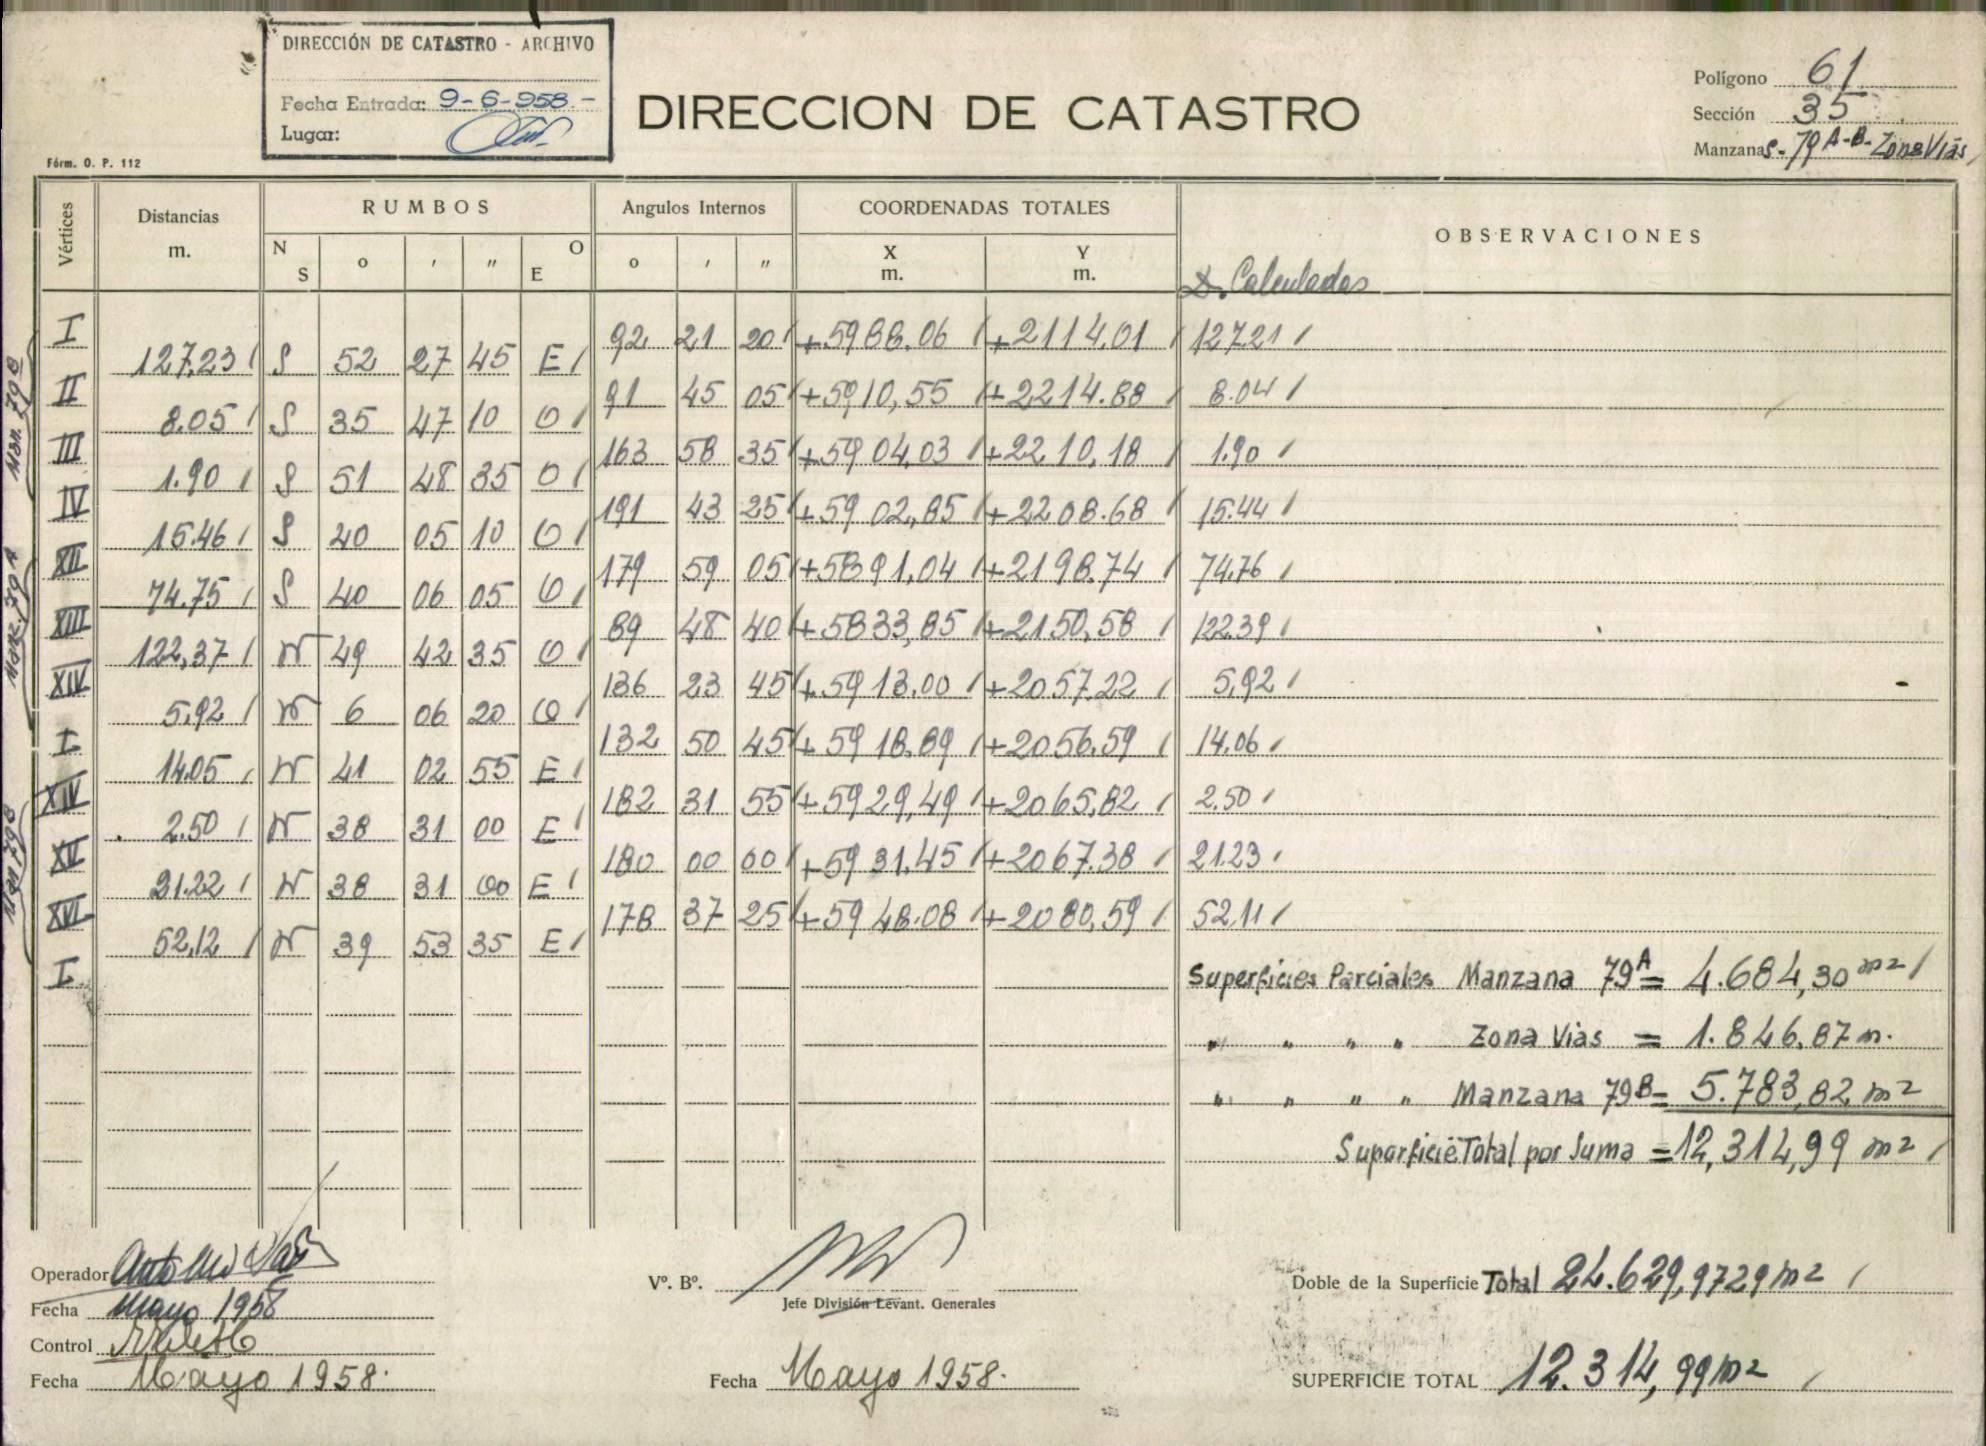 DIRECCIÓN DE CATASTRO - ARCHIVO
Fecha Entrada: 9-6-958.-
Lugar:
Fórm. O. P. 112
DIRECCION DE CATASTRO
Polígono 61
Sección 35
Manzanas - 79 A-B- Zona Vias
Vértices Distancias m. RUMBOS Angulos Internos COORDENADAS TOTALES OBSERVACIONES
N S o ' " O E o ' " X m. Y m.
D. Calculadas
I 92 21 20 +5988.06 +2114.01 127.21
127.23 S 52 27 45 E
II 91 45 05 +5910,55 +2214.88 8.04
8.05 S 35 47 10 O
III 163 58 35 +5904,03 +2210,18 1.90
1.90 S 51 48 35 O
IV 191 43 25 +5902,85 +2208.68 15.44
15.46 S 40 05 10 O
XII 179 59 05 +5891,04 +2198.74 74,76
74.75 S 40 06 05 O
XIII 89 48 40 +5833,85 +2150,58 122.39
122,37 N 49 42 35 O
XIV 136 23 45 +5913.00 +2057.22 5,92
5,92 N 6 06 20 O
I 132 50 45 +5918.89 +2056.59 14.06
14.05 N 41 02 55 E
XIV 182 31 55 +5929,49 +2065,82 2.50
2.50 N 38 31 00 E
XV 180 00 00 +5931.45 +2067.38 21.23
21.22 N 38 31 00 E
XVI 178 37 25 +5948.08 +2080,59 52.11
52,12 N 39 53 35 E
I
Man. 79 B
Manz. 79 A
Man 79 B
Superficies Parciales Manzana 79A = 4.684,30 m2
" " " " Zona Vias = 1.846,87 m.
" " " " Manzana 79B = 5.783,82 m2
Superficie Total por Suma = 12,314,99 m2
Operador
Fecha Mayo 1958
Control
Fecha Mayo 1958.
Vº. Bº.
Jefe División Levant. Generales
Fecha Mayo 1958.
Doble de la Superficie Total 24.629,9729 m2
SUPERFICIE TOTAL 12.314,99 m2